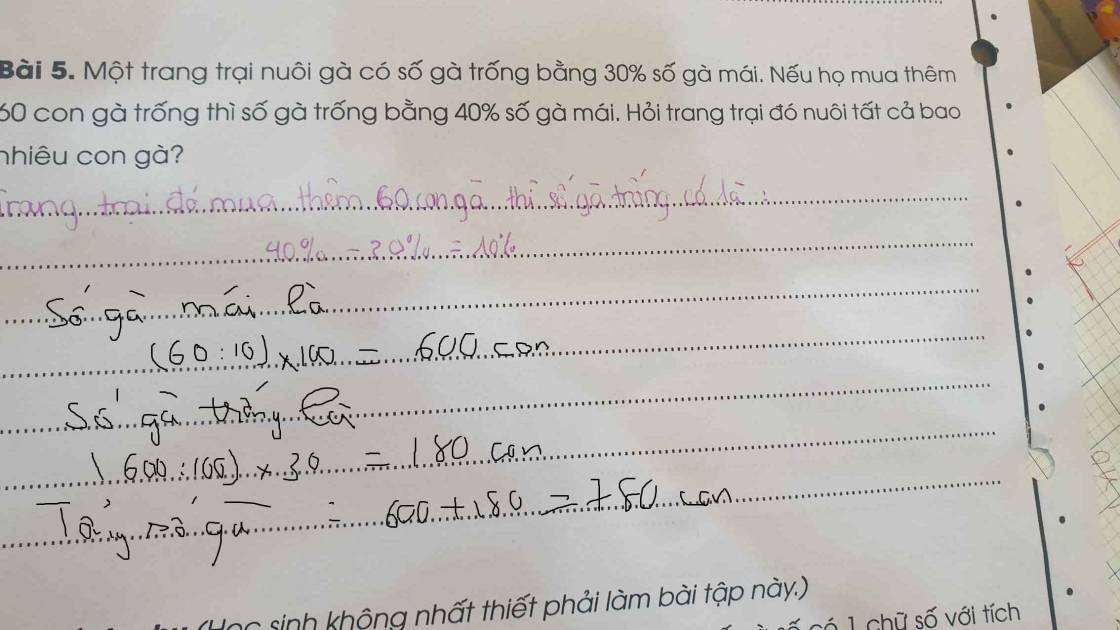 Bài 5. Một trang trại nuôi gà có số gà trống bằng 30% số gà mái. Nếu họ mua thêm
60 con gà trống thì số gà trống bằng 40% số gà mái. Hỏi trang trại đó nuôi tất cả bao
nhiêu con gà?
Trang trại đó mua thêm 60 con gà thì số gà trống có là :
40% - 30% = 10%
Số gà mái là
(60 : 10) x 100 = 600 con
Số gà trống là
(600 : 100) x 30 = 180 con
Tổng số gà = 600 + 180 = 780 con
(Học sinh không nhất thiết phải làm bài tập này.)
số có 1 chữ số với tích